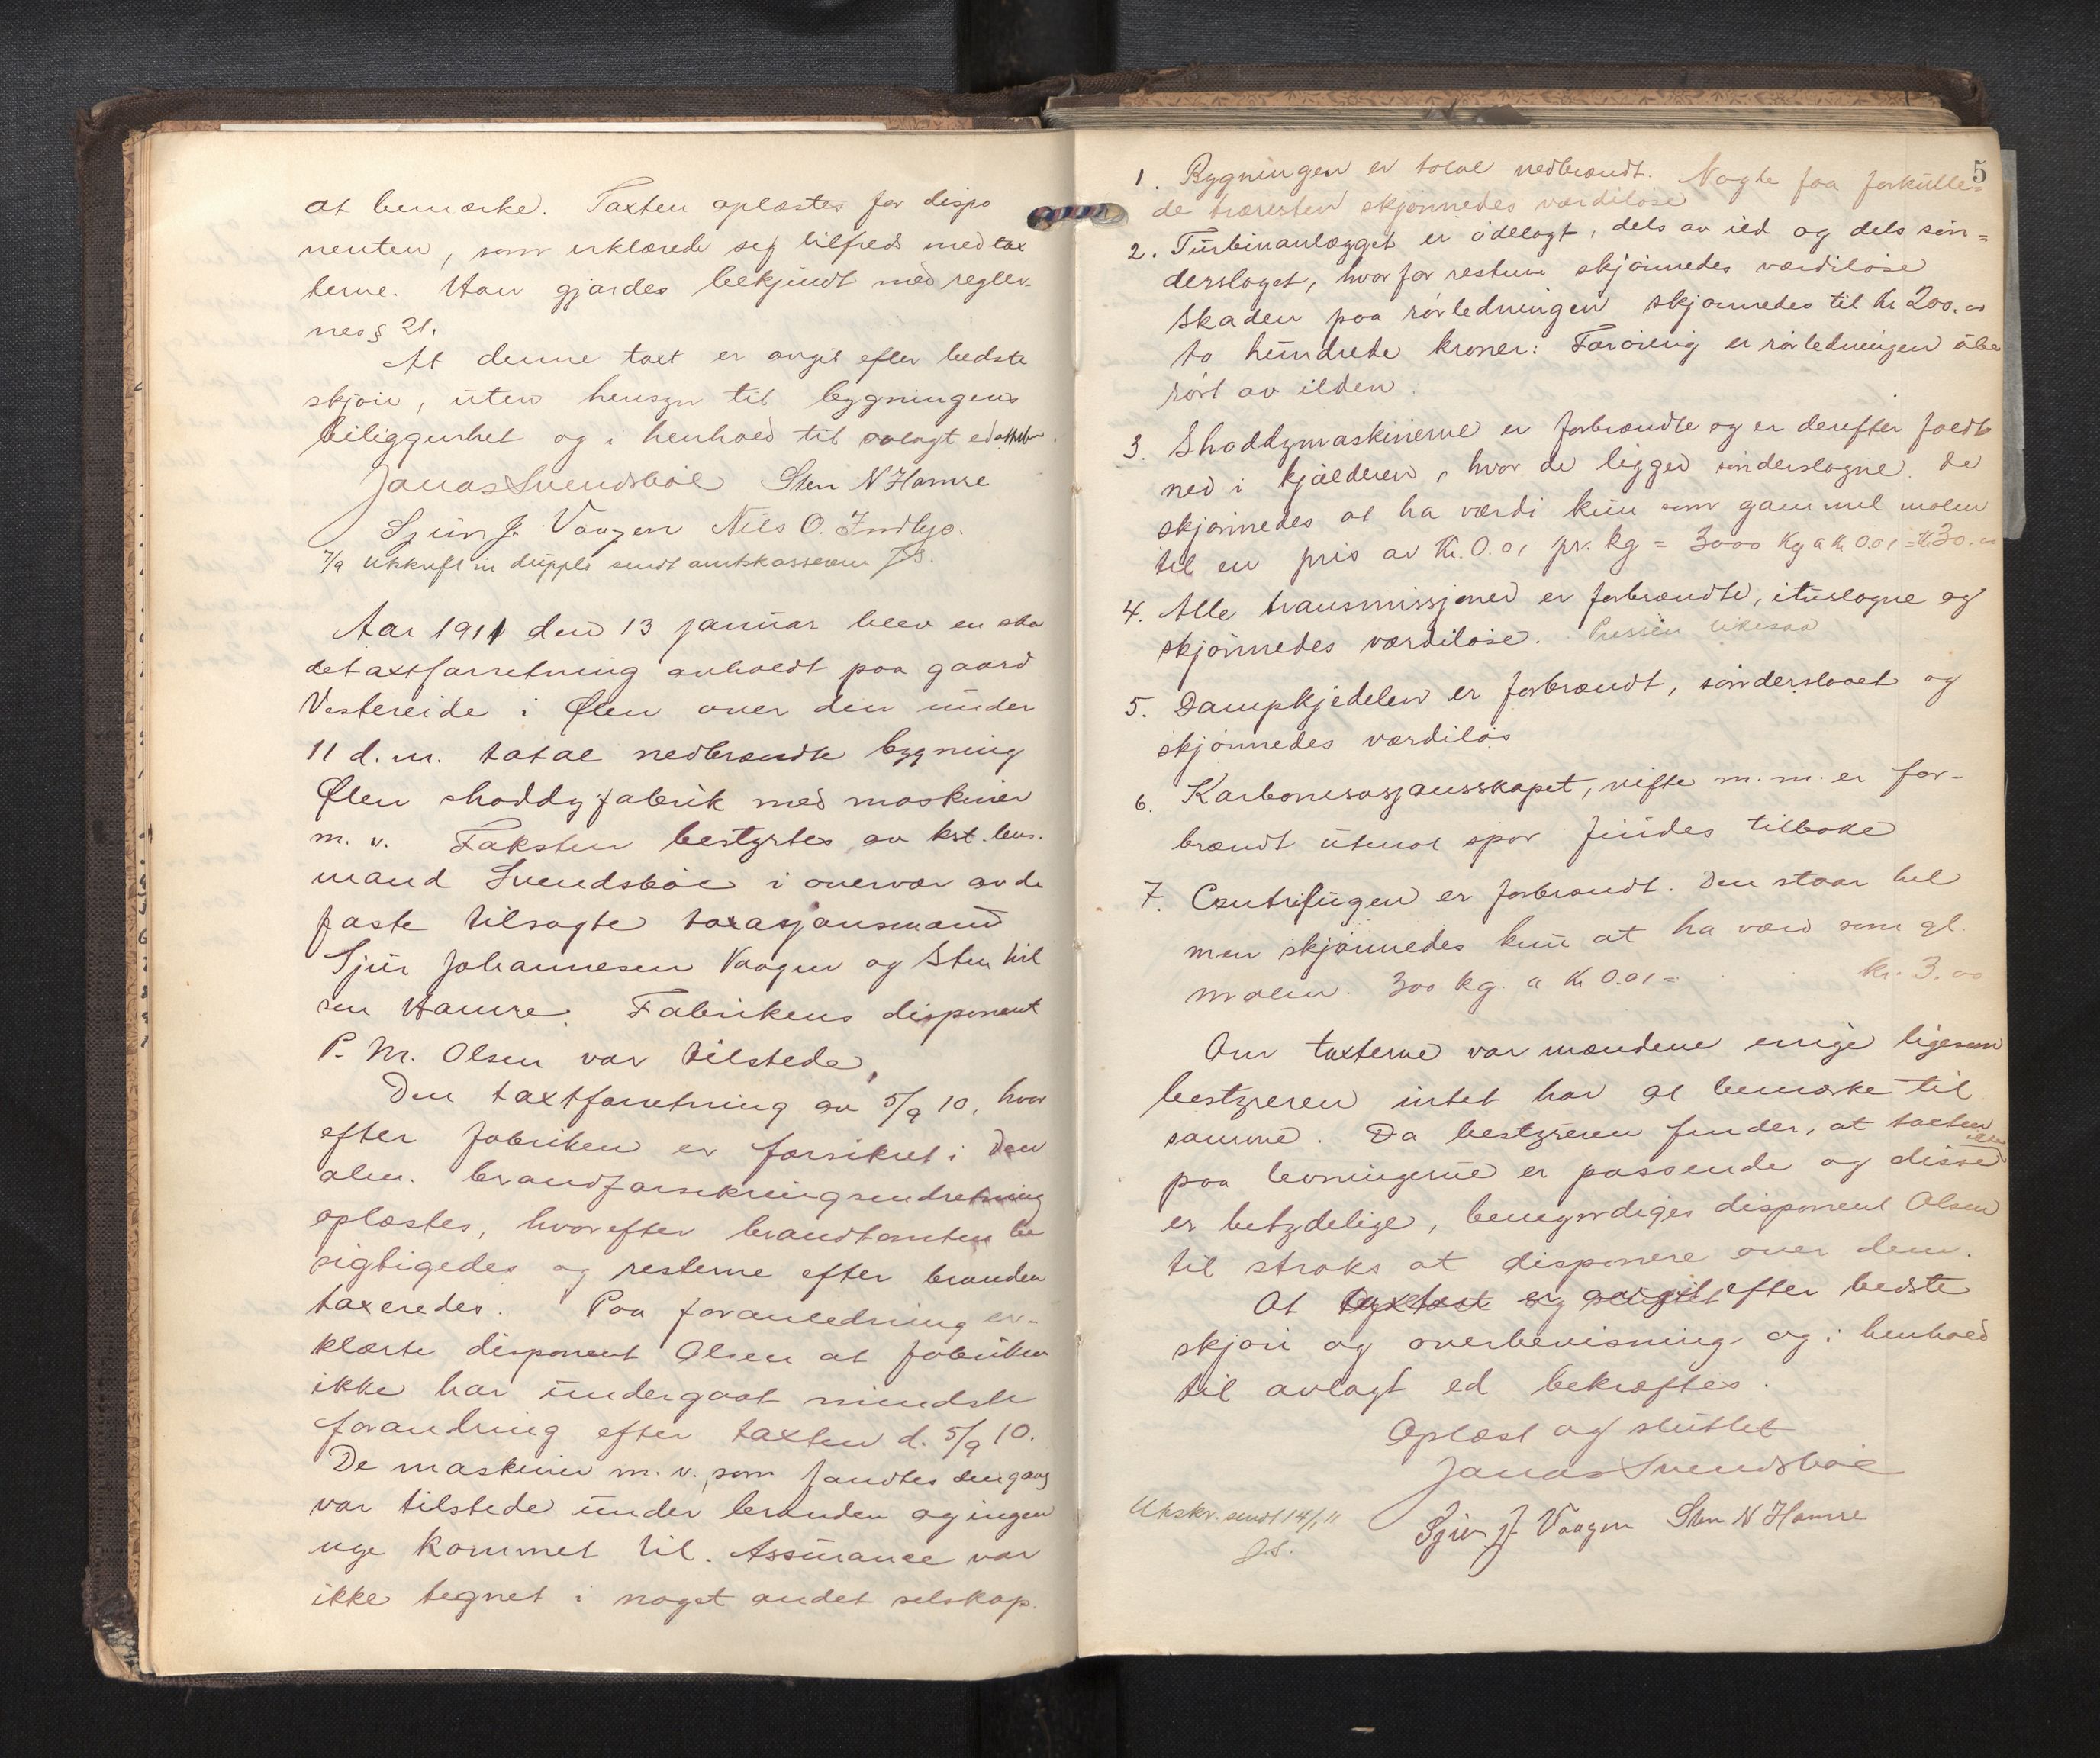 at bemærke. Taxten oplæstes for dispo
nenten, som erklærede sig tilfreds med tax
terne. Han gjordes bekjendt med regler-
nes § 21.
At denne taxt er avgit efter bedste
skjøn, uten hensyn til bygningens
beliggenhet og i henhold til avlagt ed
Jonas Svendsbøe Sten N Hamre
Sjur J. Vaagen Nils O. Indbjo.
7/9 Utskrift in duplo sendt amtskassereren JS.
Aar 1911 den 13 januar blev en ska
detaxtforretning avholdt paa gaard
Vestereide i Ølen over den under
11 d. m. total nedbrændte bygning
Ølen shoddyfabrik med maskiner
m. v. Taksten bestyrtes av kst. lens.
mand Svendsbøe i overvær av de
faste tilsagte taxasjonsmænd
Sjur Johannesen Vaagen og Sten Nil
sen Hamre. Fabrikens disponent
P. M. Olsen var tilstede.
Den taxtforretning av 5/9 10, hvor
efter fabriken er forsikret i den
alm. brandforsikringsindretning
oplæstes, hvorefter brandtomten be
sigtigedes og resterne efter branden
taxeredes. Paa foranledning er-
klærte disponent Olsen at fabriken
ikke har undergaat mindste
forandring efter taxten d. 5/9 10.
De maskiner m. v., som fandtes dengang
var tilstede under branden og ingen
nye kommet til. Assurance var
ikke tegnet i noget andet selskap.
5
1. Bygningen er total nedbrændt. Nogle faa forkulle=
de trærester skjønnedes værdiløse
2. Turbinanlægget er ødelagt, dels av ild og dels søn=
derslaget, hvorfor resterne skjønnedes værdiløse
Skaden paa rørledningen skjønnedes til Kr 200.00
to hundrede kroner: Forøvrig er rørledningen ube
rørt av ilden.
3. Shoddymaskinerne er forbrændte og er derefter faldt
ned i kjælderen, hvor de ligger sønderslagne. De
skjønnedes at ha værdi kun som gammel malm
til en pris av Kr. 0.01 pr. kg = 3000 Kg a Kr 0.01 = Kr 30.00
4. Alle transmissjoner er forbrændte, ituslagne og
skjønnedes værdiløse. Pressen likesaa
5. Dampkjedelen er forbrændt, sønderslaaet og
skjønnedes værdiløs
6. Karbonisasjonsskapet, vifte m. m. er for-
brændt uten at spor findes tilbake
7. Centrifugen er forbrændt. Den staar hel
men skjønnedes kun at ha værd som gl.
malm. 300 kg. a Kr 0.01 = kr. 3.00
Om taxterne var mændene enige ligesom
bestyreren intet har at bemærke til
samme. Da bestyreren finder, at taxten
paa levningerne er passende og disse ikke
er betydelige, bemyndiges disponent Olsen
til straks at disponere over dem.
At taxten er avgit efter bedste
skjøn og overbevisning og i henhold
til avlagt ed bekræftes.
Oplæst og sluttet
Jonas Svendsbøe
Utskr. sendt 14/1 11
J.S.
Sjur J. Vaagen Sten N Hamre